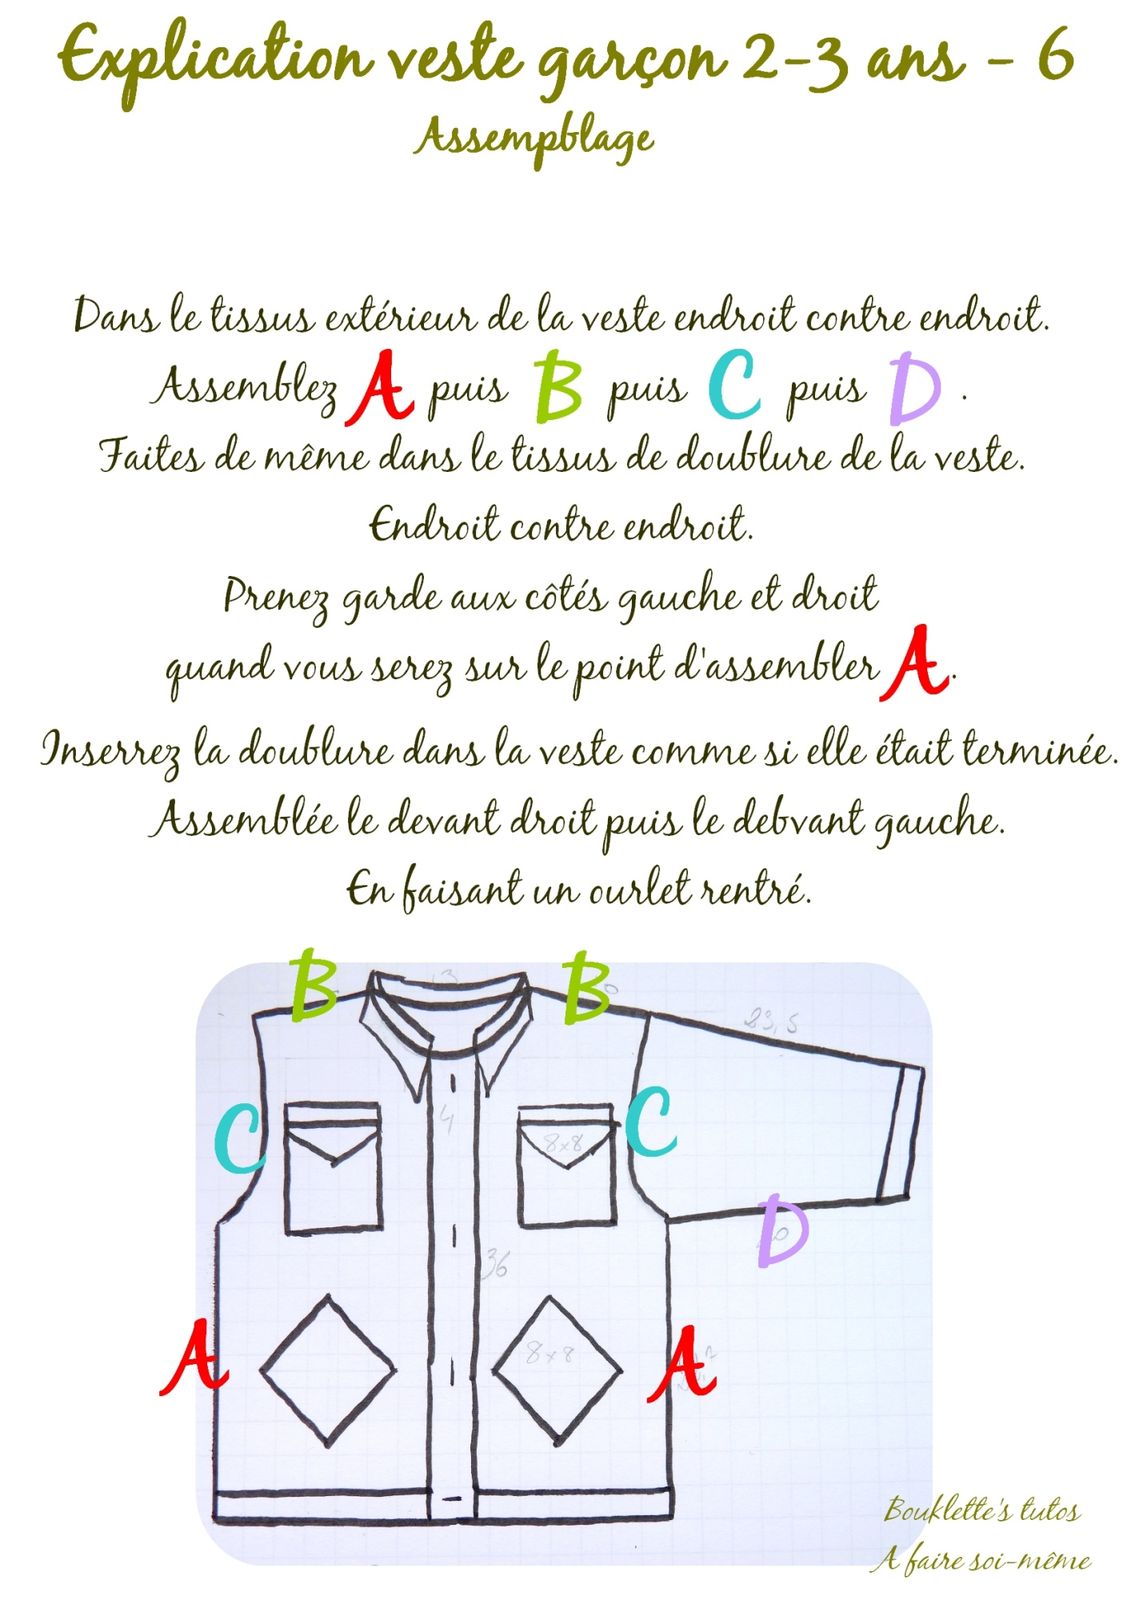 Explication veste garçon 2-3 ans - 6
Assempblage
Dans le tissus extérieur de la veste endroit contre endroit.
Assemblez A puis B puis C puis D .
Faites de même dans le tissus de doublure de la veste.
Endroit contre endroit.
Prenez garde aux côtés gauche et droit
quand vous serez sur le point d'assembler A.
Inserrez la doublure dans la veste comme si elle était terminée.
Assemblée le devant droit puis le debvant gauche.
En faisant un ourlet rentré.
B B
23,5
C 4 8x8 C
D
36
A 8x8 A
Bouklette's tutos
A faire soi-même